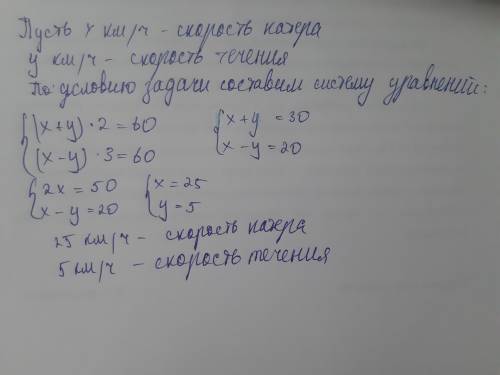 Пусть x км/ч - скорость катера
y км/ч - скорость течения
По условию задачи составим систему уравнений:
{(x+y)·2=60 {x+y=30
{(x-y)·3=60 {x-y=20
{2x=50 {x=25
{x-y=20 {y=5
25 км/ч - скорость катера
5 км/ч - скорость течения